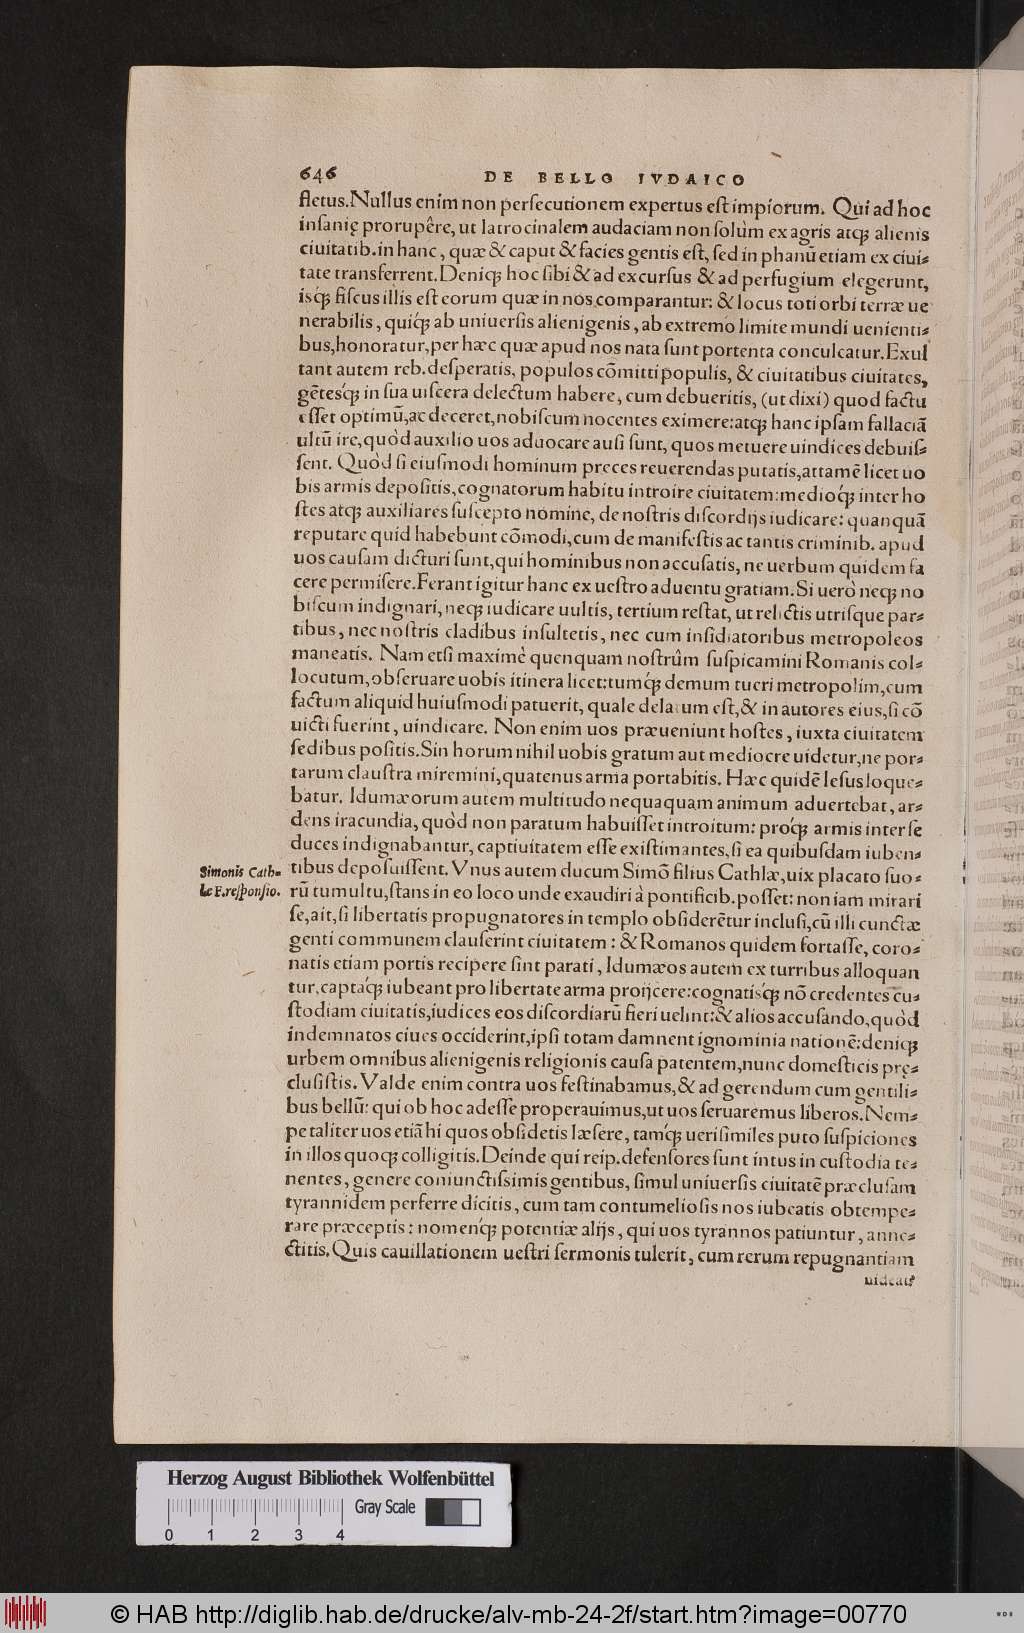 646 DE BELLO IVDAICO
fletus. Nullus enim non persecutionem expertus est impiorum. Qui ad hoc
insanię prorupêre, ut latrocinalem audaciam non solùm ex agris atq; alienis
ciuitatib. in hanc, quæ & caput & facies gentis est, sed in phanū etiam ex ciui=
tate transferrent. Deniq; hoc sibi & ad excursus & ad perfugium elegerunt,
isq́; fiscus illis est eorum quæ in nos comparantur: & locus toti orbi terræ ue
nerabilis, quiq́; ab uniuersis alienigenis, ab extremo limite mundi uenienti=
bus, honoratur, per hæc quæ apud nos nata sunt portenta conculcatur. Exul
tant autem reb. desperatis, populos cōmitti populis, & ciuitatibus ciuitates,
gētesq́; in sua uiscera delectum habere, cum debueritis, (ut dixi) quod factu
esset optimū, ac deceret, nobiscum nocentes eximere: atq; hanc ipsam fallaciā
ultū ire, quòd auxilio uos aduocare ausi sunt, quos metuere uindices debuis=
sent. Quòd si eiusmodi hominum preces reuerendas putatis, attamē licet uo
bis armis depositis, cognatorum habitu introire ciuitatem: medioq́; inter ho
stes atq; auxiliares suscepto nomine, de nostris discordijs iudicare: quanquā
reputare quid habebunt cōmodi, cum de manifestis ac tantis criminib. apud
uos causam dicturi sunt, qui hominibus non accusatis, ne uerbum quidem fa
cere permisere. Ferant igitur hanc ex uestro aduentu gratiam. Si uerò neq; no
biscum indignari, neq; iudicare uultis, tertium restat, ut relictis utrisque par=
tibus, nec nostris cladibus insultetis, nec cum insidiatoribus metropoleos
maneatis. Nam etsi maximè quenquam nostrûm suspicamini Romanis col=
locutum, obseruare uobis itinera licet: tumq́; demum tueri metropolim, cum
factum aliquid huiusmodi patuerit, quale delatum est, & in autores eius, si cō
uicti fuerint, uindicare. Non enim uos præueniunt hostes, iuxta ciuitatem
sedibus positis. Sin horum nihil uobis gratum aut mediocre uidetur, ne por=
tarum claustra miremini, quatenus arma portabitis. Hæc quidē Iesus loque=
batur. Idumæorum autem multitudo nequaquam animum aduertebat, ar=
dens iracundia, quòd non paratum habuisset introitum: proq́; armis inter se
duces indignabantur, captiuitatem esse existimantes, si ea quibusdam iuben=
tibus deposuissent. Vnus autem ducum Simō filius Cathlæ, uix placato suo=
Simonis Cath=
læ F. responsio.
rū tumultu, stans in eo loco unde exaudiri à pontificib. posset: non iam mirari
se, ait, si libertatis propugnatores in templo obsiderētur inclusi, cū illi cunctæ
genti communem clauserint ciuitatem: & Romanos quidem fortasse, coro=
natis etiam portis recipere sint parati, Idumæos autem ex turribus alloquan
tur, captaq́; iubeant pro libertate arma proijcere: cognatisq́; nō credentes cu=
stodiam ciuitatis, iudices eos discordiarū fieri uelint: & alios accusando, quòd
indemnatos ciues occiderint, ipsi totam damnent ignominia nationē: deniq;
urbem omnibus alienigenis religionis causa patentem, nunc domesticis pre=
clusistis. Valde enim contra uos festinabamus, & ad gerendum cum gentili=
bus bellū: qui ob hoc adesse properauimus, ut uos seruaremus liberos. Nem=
pe taliter uos etiā hi quos obsidetis læsere, tamq́; uerisimiles puto suspiciones
in illos quoq; colligitis. Deinde qui reip. defensores sunt intus in custodia te=
nentes, genere coniunctissimis gentibus, simul uniuersis ciuitatē præclusam
tyrannidem perferre dicitis, cum tam contumeliosis nos iubeatis obtempe=
rare præceptis: nomenq́; potentiæ alijs, qui uos tyrannos patiuntur, anne=
ctitis. Quis cauillationem uestri sermonis tulerit, cum rerum repugnantiam
uideat?
Herzog August Bibliothek Wolfenbüttel
Gray Scale
0 1 2 3 4
© HAB http://diglib.hab.de/drucke/alv-mb-24-2f/start.htm?image=00770